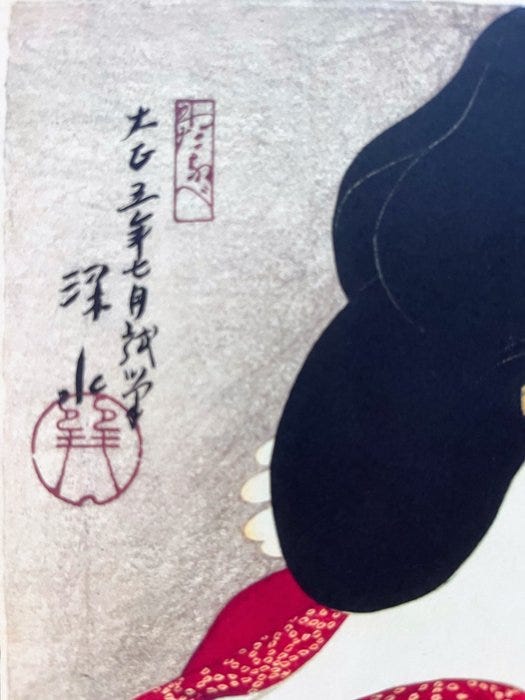 大正五年七月試筆
深水